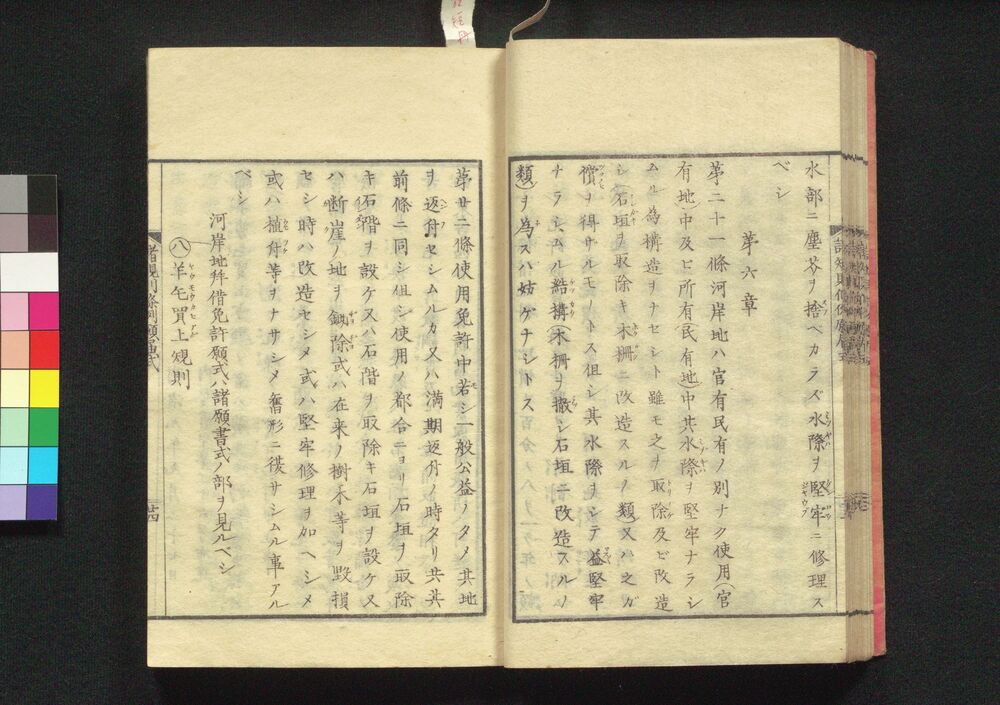 水部ニ塵芥ヲ捨ベカラズ水際ヲ堅牢ニ修理ス
ベシ
第六章
第二十一條河岸地ハ官有民有ノ別ナク使用(官
有地)中及ヒ所有(民有地)中共水際ヲ堅牢ナラシ
ムル為搆造ヲナセシト雖モ之ヲ取除及ビ改造
シ石垣ヲ取除キ木柵ニ改造スルノ類又ハ之ガ
償ヲ得サルモノトス但シ其水際ヲシテ益堅牢
ナラシムル結搆(木柵ヲ撤シ石垣ニ改造スルノ
類)ヲ為スハ妨ゲナシトス
第廿二條使用免許中若シ一般公益ノタメ其地
ヲ返舟セシムルカ又ハ満期返舟ノ時タリ共其
前條ニ同シ但シ使用ノ都合ニヨリ石垣ヲ取除
キ石階ヲ設ケ又ハ石階ヲ取除キ石垣ヲ設ケ又
ハ断崖ノ地ヲ鋤除或ハ在来ノ樹木等ヲ毀損
セシ時ハ改造セシメ或ハ堅牢修理ヲ加ヘシメ
或ハ植舟等ヲナサシメ舊形ニ復サシムル事アル
ベシ
河岸地拜借免許願式ハ諸願書式ノ部ヲ見ルベシ
(八)羊毛買上規則
諸規則條例願届式
廿四